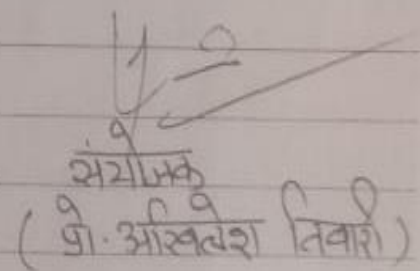 संयोजक
(प्रो. अखिलेश तिवारी)